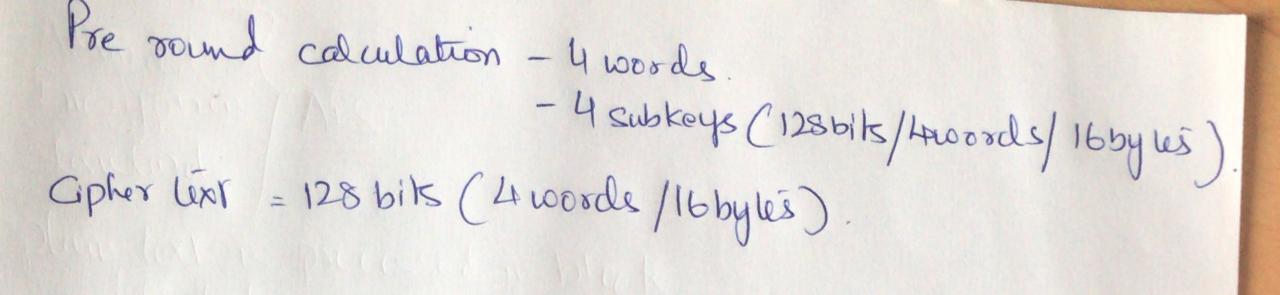 Pre round calculation - 4 words.
- 4 subkeys (128bits/4words/16bytes).
Cipher text = 128 bits (4 words /16bytes).